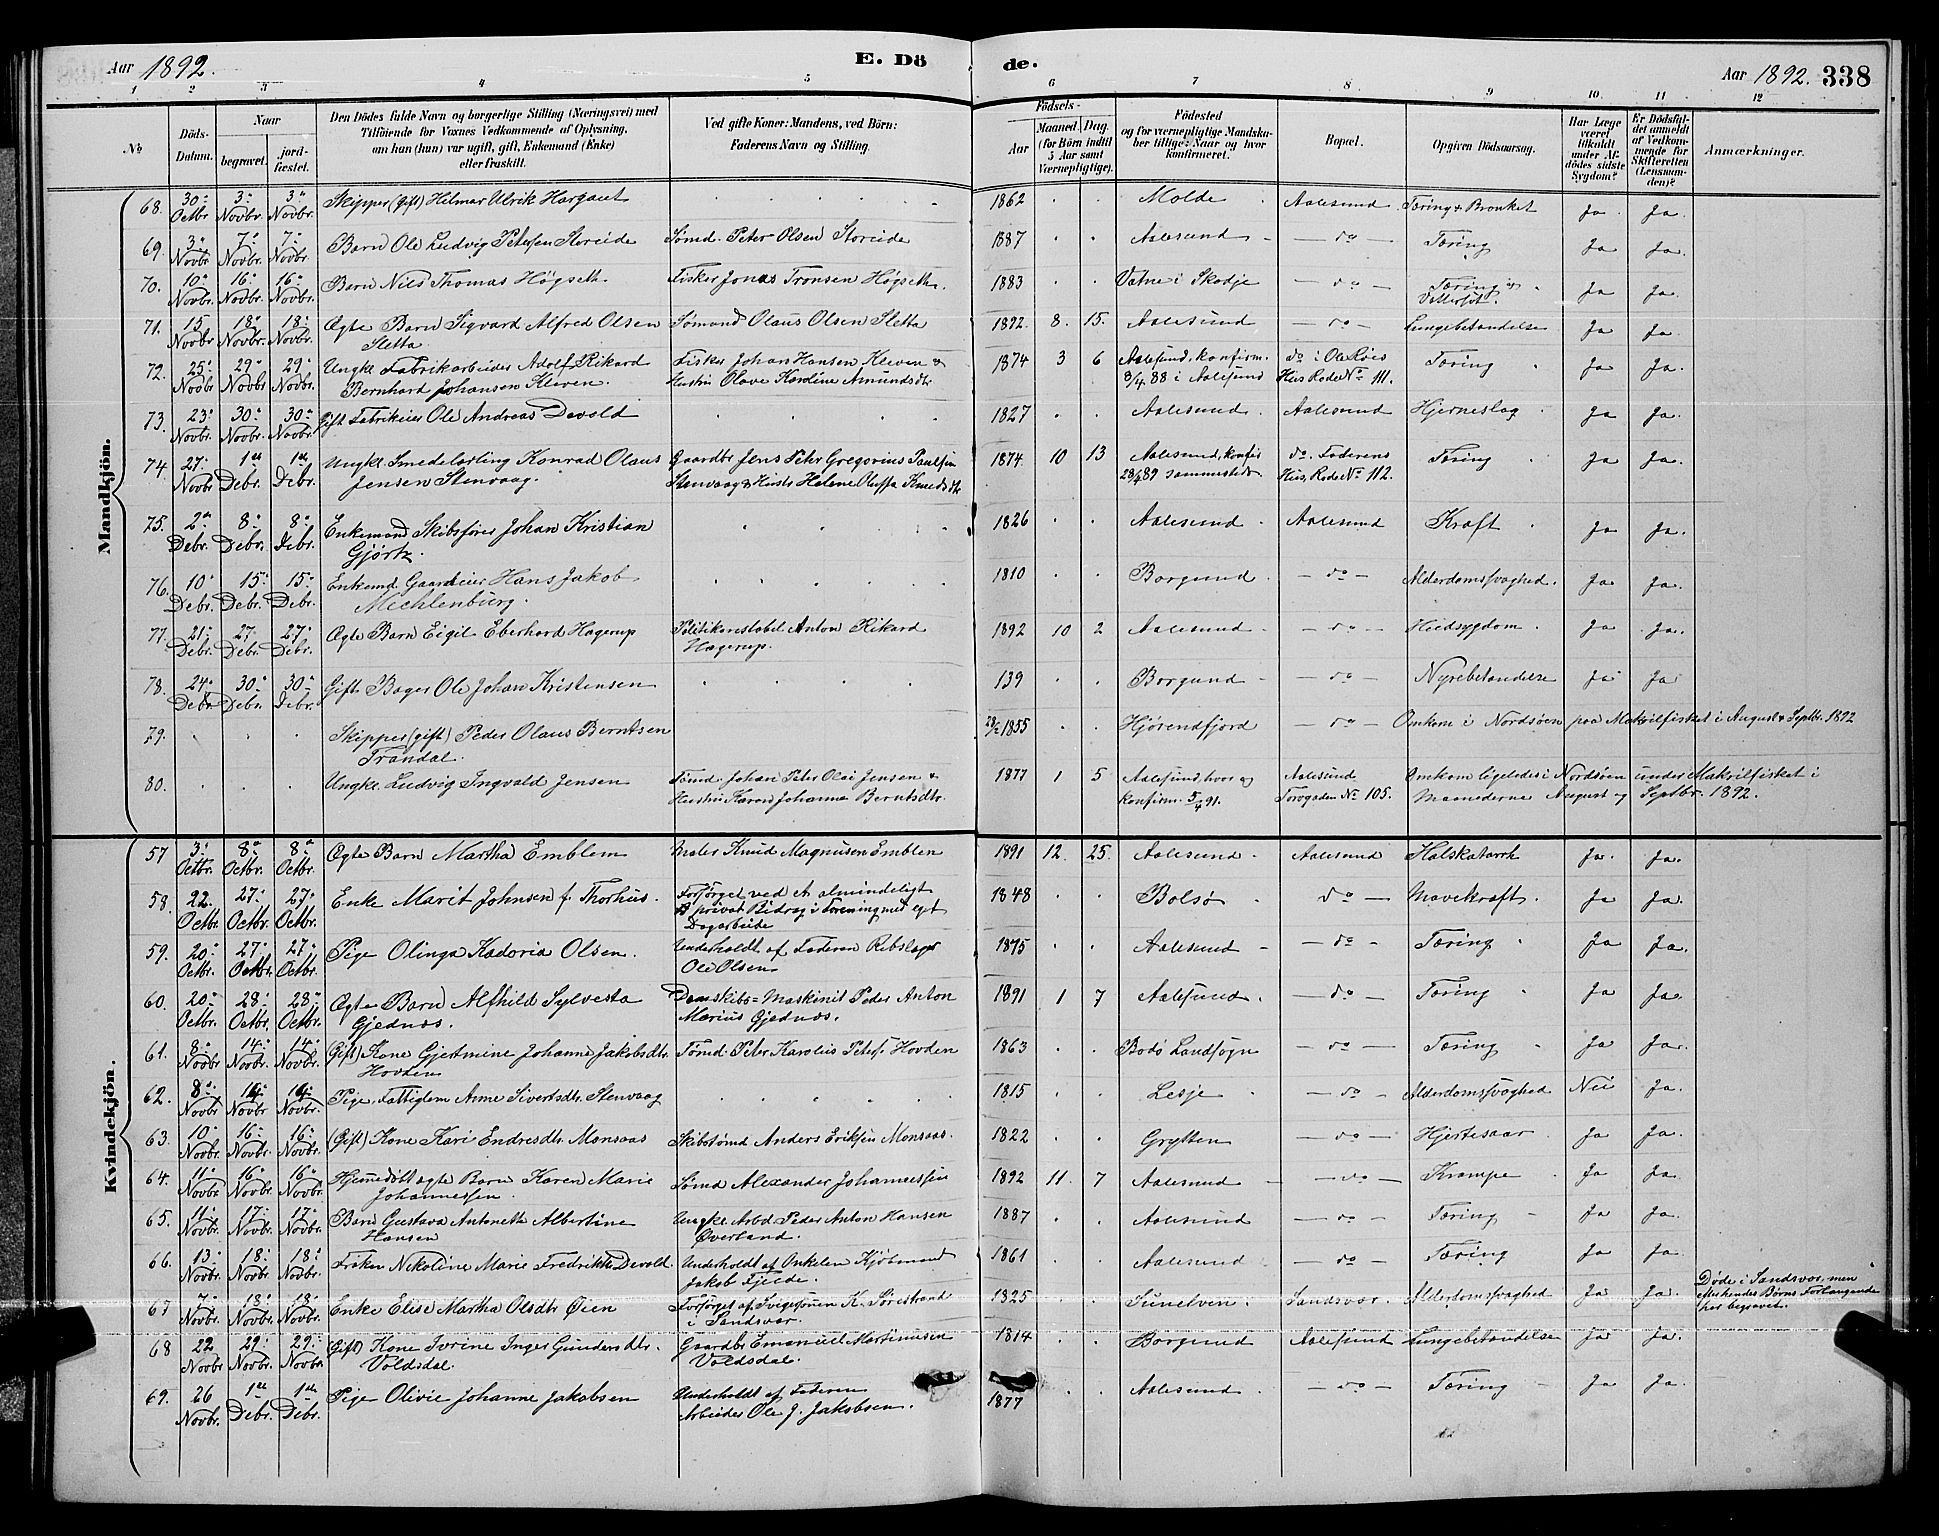 Aar 1892. E. Döde. Aar 1892. 338
1 2 3 4 5 6 7 8 9 10 11 12
No
Döds-Datum.
Naar begravet. jordfæstet.
Den Dödes fulde Navn og borgerlige Stilling (Næringsvei) med Tilföiende for Voxnes Vedkommende af Oplysning, om han (hun) var ugift, gift, Enkemand (Enke) eller fraskilt.
Ved gifte Koner: Mandens, ved Börn: Faderens Navn og Stilling.
Födsels-
Aar Maaned. Dag. (for Börn indtil 5 Aar samt Værnepligtige).
Födested og for værnepligtige Mandskaber tillige: Naar og hvor konfirmeret.
Bopæl.
Opgiven Dödsaarsag.
Har Læge været tilkaldt under Afdödes sidste Sygdom?
Er Dödsfaldet anmeldt af Vedkommende for Skifteretten (Lensmanden)?
Anmærkninger.
Mandkjön.
68. 30 Octbr 3 Novbr. 3 Novbr. Skipper (Gift) Hilmar Ulrik Hargaut 1862 Molde Aalesund Tæring & Bronket Ja Ja.
69. 3 Novbr. 7 Novbr. 7 Novbr. Barn Ole Ludvig Petersen Storeide Sömd. Peter Olsen Storeide 1887 Aalesund do Tæring Ja Ja.
70. 10 Novbr. 16 Novbr. 16 Novbr. Barn Nils Thomas Högseth Fisker Jonas Tronsen Högseth. 1883 Vatne i Skodje do Tæring og Vattersot. Ja Ja.
71. 15 Novbr 18 Novbr. 18 Novbr. Ægte Barn Sigvard Alfred Olsen Sletta Sömand Olaus Olsen Sletta 1892 8. 15. Aalesund do Lungebetændelse Ja Ja.
72. 25 Novbr 29 Novbr 29 Novbr. Ungke Fabrikarbeider Adolf Rikard Bernhard Johansen Kleven. Fisker Johan Hansen Kleven & Hustru Olave Kardine Amundsdtr 1874 3 6 Aalesund, konfirm. 8/4 88 i Aalesund do i Ole Röes Hus Rode No 111. Tæring Ja Ja.
73. 23 Novbr. 30 Novbr. 30 Novbr. Gift Fabrikeier Ole Andreas Devold 1827 Aalesund Aalesund Hjerneslag Ja Ja.
74. 27 Novbr 1ste Debr. 1ste Debr. Ungke. Smedelærling Konrad Olaus Jensen Stenvaag. Gaardbr Jens Peter Gregorius Paulsen Stenvaag & Hustr Helene Oluffa Knudsdtr 1874. 10 13 Aalesund, konfir 28/4 89 sammesteds do. Faderens Hus, Rode No 112. Tæring Ja Ja.
75. 2 Debr. 8 Debr. 8 Debr. Enkemand Skibsförer Johan Kristian Gjörtz. 1826 Aalesund Aalesund Kræft Ja Ja.
76. 10 Debr. 15 Debr. 15 Debr. Enkemd. Gaardeier Hans Jakob Mechlenburg. 1810 Borgund do Alderdomssvaghed. Ja Ja.
77. 21 Debr. 27 Debr. 27 Debr. Ægte Barn Eigil Eberhard Hagerup Politikonstabel Anton Rikard Hagerup. 1892 10 2 Aalesund do Hudsygdom Ja Ja.
78. 24 Debr 30 Debr. 30 Debr. Gift Bager Ole Johan Kristensen 139 Borgund do Nyrebetændelse Ja Ja
79. Skipper (gift) Peder Olaus Berntsen Trandal. 28/2 1855 Hjørendfjord do Omkom i Nordsøen paa Makrilfisket i August & Septbr. 1892
80. Ungke Ludvig Ingvald Jensen Sömd. Johan Peter Olai Jensen & Hustru Karen Johanne Berntsdtr. 1877 1 5 Aalesund, hvor og konfirm. 5/4 91. Aalesund Torvgaden No 105. Omkom ligeledes i Nordsøen under Makrilfisket i Maanederne August og Septbr. 1892.
Kvindekjön.
57 3 Octbr. 8 Octbr. 8 Octbr. Ægte Barn Martha Emblem Maler Knud Magnusen Emblem 1891 12. 25. Aalesund Aalesund Halskatarrh Ja. Ja.
58. 22. Octbr. 27 Octbr. 27 Octbr. Enke Marit Johnsen f. Thorhus. Forsörget ved et almindeligt privat Bidrag i Forening med eget Dagarbeide 1848 Bolsø do Mavekræft Ja Ja.
59. 20 Octbr. 27 Octbr. 27 Octbr. Pige Olinga Kadoria Olsen. Underholdt af Faderen Rebslager Ole Olsen 1875 Aalesund do Tæring Ja Ja.
60. 20 Octbr. 28 Octbr. 28 Octbr. Ægte Barn Alfhild Sylvesta Gjednæs. Damskibs=Maskinist Peder Anton Marius Gjednæs. 1891 1 7 Aalesund do Tæring Ja Ja.
61. 8 Novbr 14 Novbr. 14 Novbr. (Gift) Kone Gjertmine Johanne Jakobsdtr. Hovden Sömd. Peter Karolius Peters. Hovden 1863 Bodö Landsogn do Tæring Ja Ja.
62. 8 Novbr 14 Novbr 14 Novbr. Pige. Fattiglem Anne Sivertsdtr. Stenvaag 1815 Lesje do Alderdomssvaghed Nei Ja.
63. 10 Novbr. 16 Novbr. 16 Novbr. (Gift) Kone Kari Endresdtr Monsaas Skibstömd Anders Eriksen Monsaas. 1822 Grytten do Hjertesaar Ja Ja.
64. 11 Novbr. 16 Novbr. 16 Novbr. Hjemedöbt ægte Barn Karen Marie Johannessen Sömd Alexander Johannessen 1892 11. 7 Aalesund do Krampe Ja Ja.
65. 11 Novbr. 17 Novbr. 17 Novbr. Barn Gustava Antonette Albertine Hansen Ungke Arbd. Peder Anton Hansen Øverland. 1887 Aalesund do Tæring Ja Ja.
66. 13 Novbr. 18 Novbr. 18 Novbr. Fröken Nikoline Marie Fredrikke Devold. Underholdt af Onkelen Kjöbmand Jakob Fjelde. 1861 Aalesund do Tæring Ja Ja.
67 7 Novbr. 18 Novbr. 18 Novbr. Enke Elise Martha Olsdtr Øien Forsörget af Svigersönen K. Sørestrand i Sandsvær. 1825 Sunelven Sandsvær. Alderdomssvaghed Ja Ja. Døde i Sandsvær, men efter hendes Børns Forlangende her begravet.
68 22 Novbr 29 Novbr. 29 Novbr (Gift) Kone Ivrine Inger Gundersdtr. Voldsdal. Gaardbr Emanuel Martinusen Voldsdal. 1814 Borgund Aalesund Lungebetændelse Ja Ja.
69. 26 Novbr. 1ste Debr. 1ste Debr. Pige Olivie Johanne Jakobsen Underholdt af Faderen Arbeider Ole J. Jakobsen. 1877 Aalesund do Tæring Ja Ja.